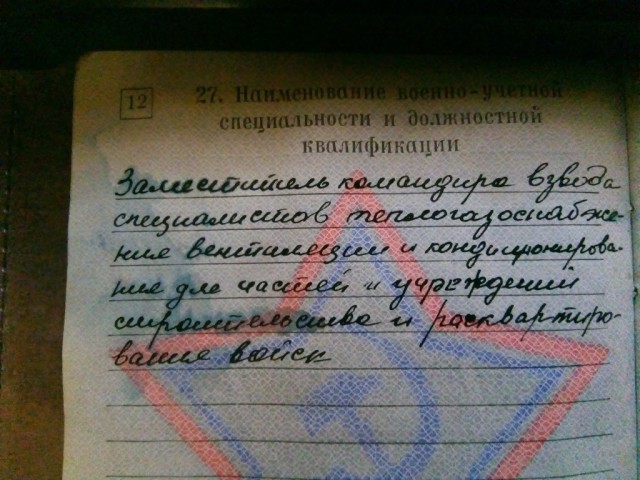 12
27. Наименование военно-учетной
специальности и должностной
квалификации
Заместитель командира взвода
специалистов теплогазоснабже-
ния вентиляции и кондиционирова-
ния для частей и учреждений
строительства и расквартиро-
вания войск